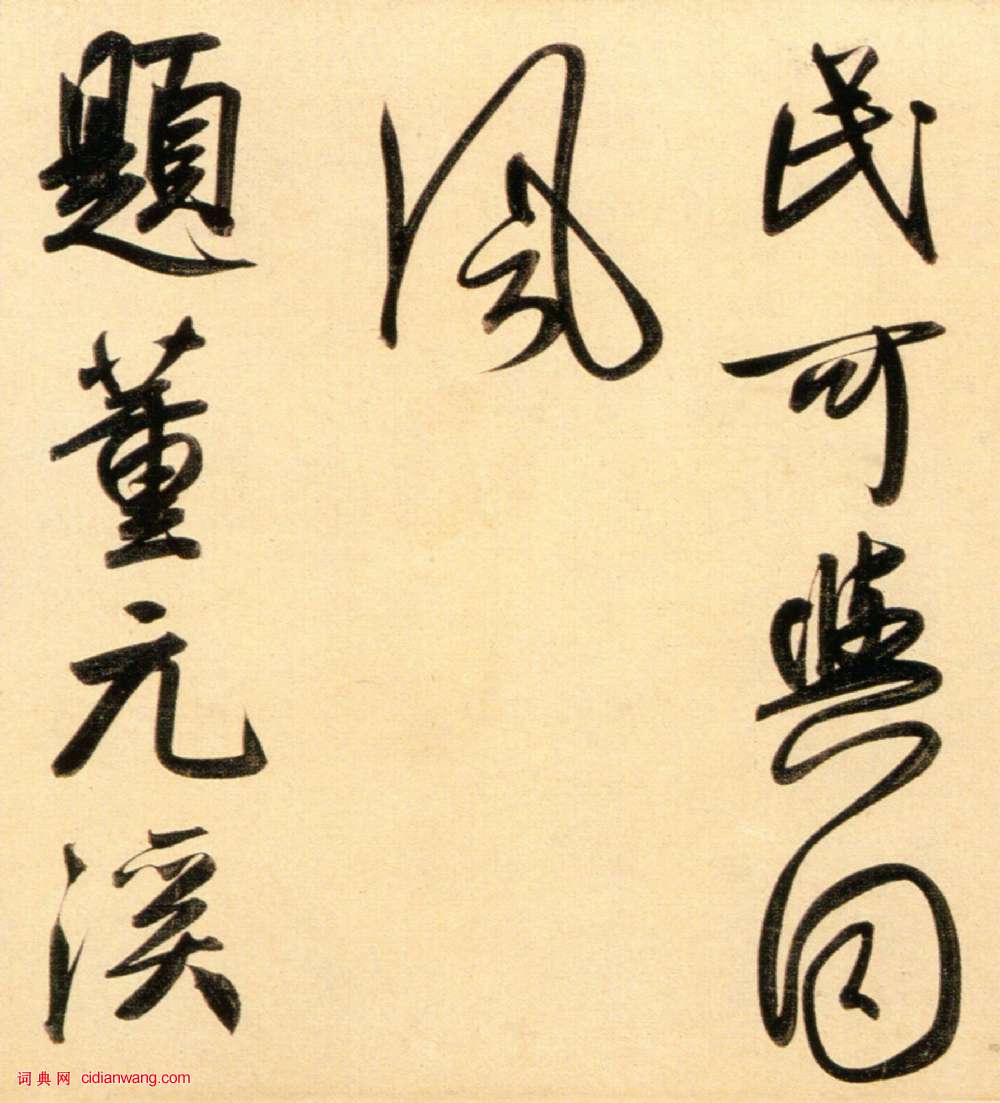 民可與同
風
題董元溪
词典网 cidianwang.com